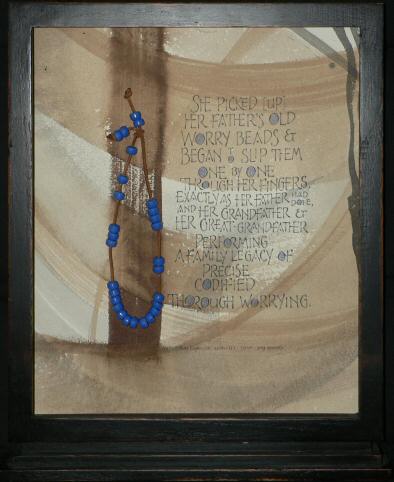 SHE PICKED [UP]
HER FATHER'S OLD
WORRY BEADS &
BEGAN TO SLIP THEM
ONE BY ONE
THROUGH HER FINGERS,
EXACTLY AS HER FATHER HAD DONE,
AND HER GRANDFATHER &
HER GREAT-GRANDFATHER
PERFORMING
A FAMILY LEGACY OF
PRECISE
CODIFIED
THOROUGH WORRYING.